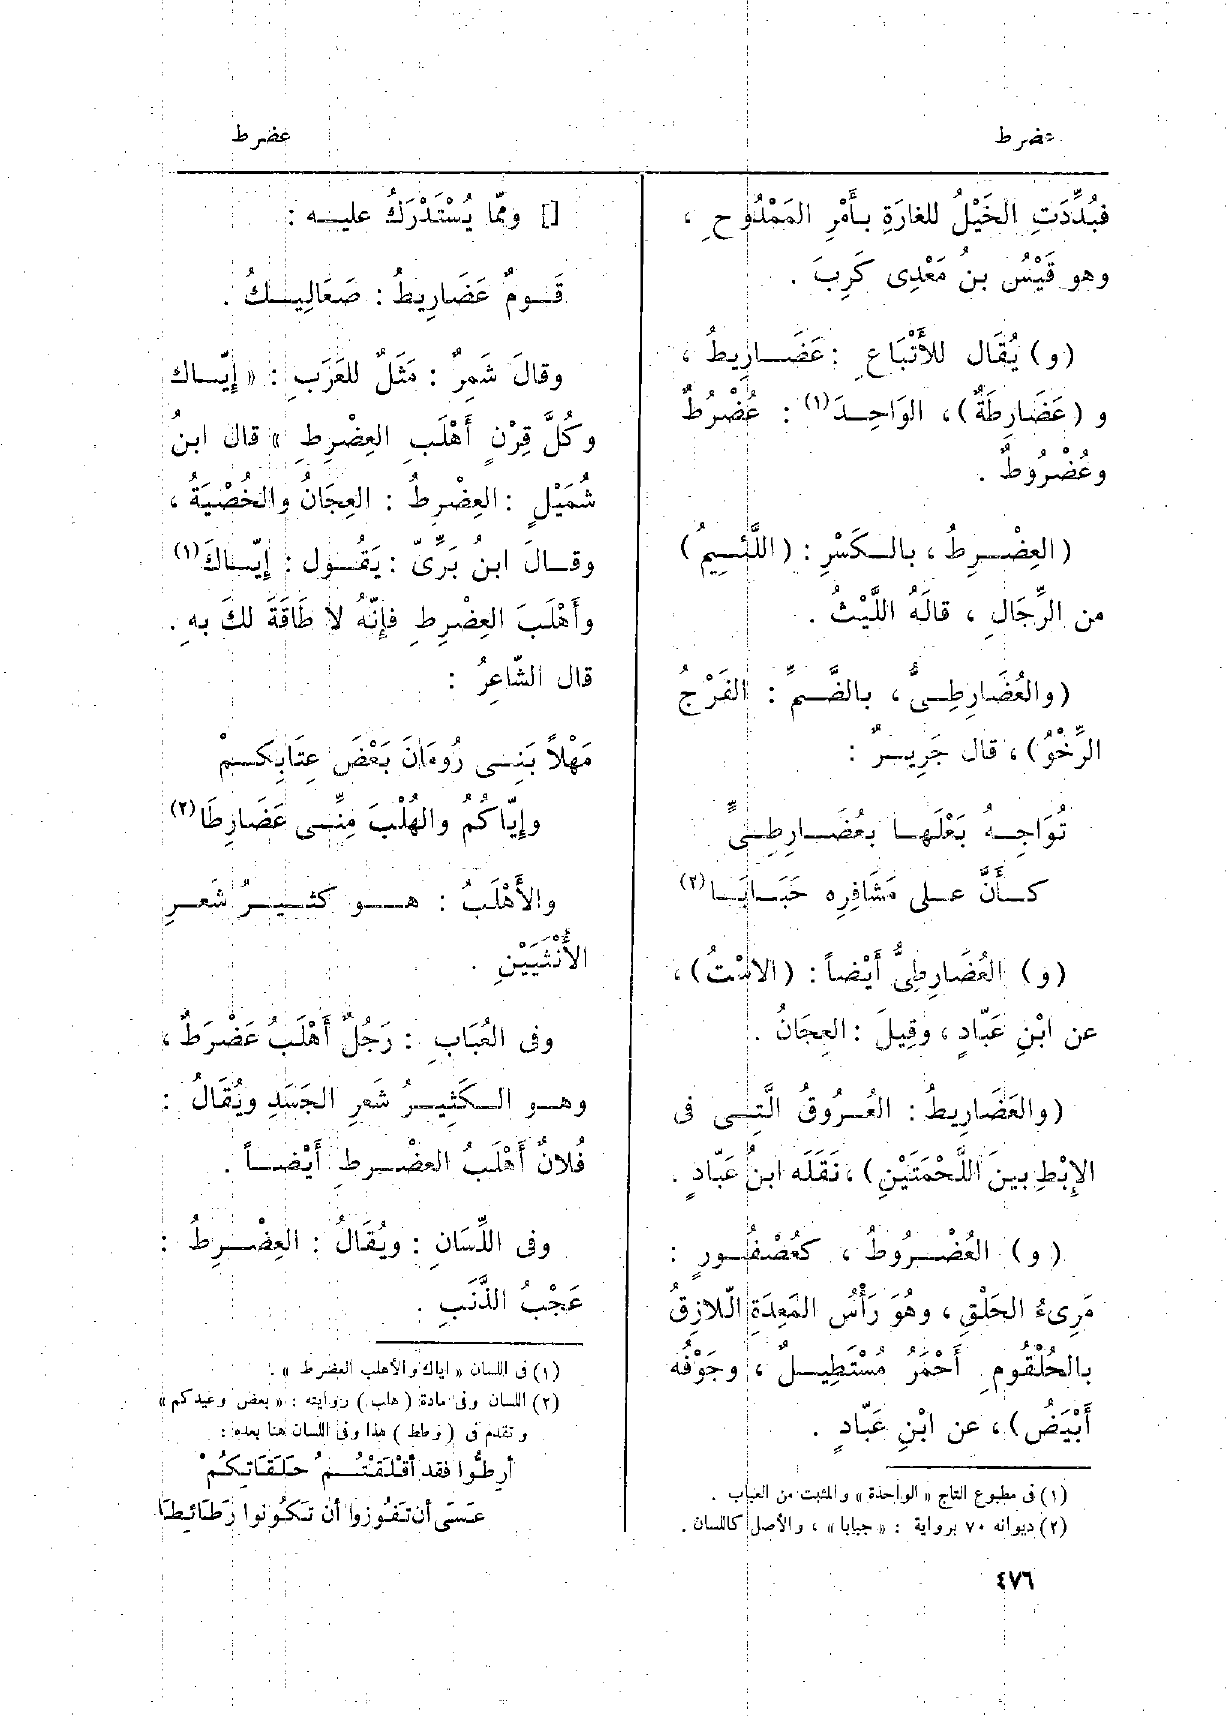 عضرط
عضرط
فبُدِّدَتِ الخَيْلُ للغارَةِ بأَمْرِ المَمْدُوحِ ،
وهو قَيْسُ بنُ مَعْدِى كَرِبَ .
(و) يُقَال للأَتْبَاعِ : عَضَارِيطُ ،
و (عَضَارِطَةٌ) ، الوَاحِدَ(١) : عُضْرُطٌ
وعُضْرُوطٌ .
(العِضْرِطُ ، بالكَسْرِ : (اللَّئِيمُ)
من الرِّجَالِ ، قالَهُ اللَّيْثُ .
(والعُضَارِطِىُّ ، بالضَّمِّ : الفَرْجُ
الرِّخْوُ) ، قال جَرِيرٌ :
تُوَاجِهُ بَعْلَها بعُضَارِطِىٍّ
كأَنَّ على مَشَافِرِه حَبَابَا(٢)
(و) العُضَارِطِىُّ أَيْضاً : (الاسْتُ) ،
عن ابْنِ عَبّادٍ ، وقِيلَ : العِجَانُ .
(والعَضَارِيطُ : العُرُوقُ الَّتِى فى
الإِبْطِ بينَ اللَّحْمَتَيْنِ) ، نَقَلَه ابنُ عَبّادٍ .
(و) العُضْرُوطُ ، كعُصْفُورٍ :
مَرِىءُ الحَلْقِ ، وهُوَ رَأْسُ المَعِدَةِ الّلازِقُ
بالحُلْقُومِ أَحْمَرُ مُسْتَطِيلٌ ، وجَوْفُه
أَبْيَضُ) ، عن ابْنِ عَبّادٍ .
(١) فى مطبوع التاج « الواحدة » والمثبت من العباب .
(٢) ديوانه ٧٠ برواية : « جبابا » ، والأصل كاللسان .
[] وممّا يُسْتَدْرَكُ عليه :
قَومٌ عَضَارِيطُ : صَعَالِيكُ .
وقالَ شَمِرٌ : مَثَلٌ للعَرَبِ : « إِيّاك
وكُلَّ قِرْنٍ أَهْلَبِ العِضْرِطِ » قال ابنُ
شُمَيْلٍ : العِضْرِطُ : العِجَانُ والخُصْيَةُ ،
وقالَ ابنُ بَرِّىّ : يَقُول : إِيّاكَ(١)
وأَهْلَبَ العِضْرِطِ فإِنّهُ لا طَاقَةَ لكَ بهِ .
قال الشّاعِرُ :
مَهْلاً بَنِى رُومَانَ بَعْضَ عِتَابِكمْ
وإِيّاكُمُ والهُلْبَ مِنِّى عَضَارِطَا(٢)
والأَهْلَبُ : هو كثيرُ شَعرِ
الأُنْثَيَيْنِ .
وفى العُبَابِ : رَجُلٌ أَهْلَبُ عَضْرَطٌ ،
وهو الكَثِيرُ شَعرِ الجَسَدِ ويُقَالُ :
فُلانٌ أَهْلَبُ العضْرطِ أَيْضاً .
وفى اللِّسَانِ : ويُقَالُ : العِضْرِطُ :
عَجْبُ الذَّنَبِ .
(١) فى اللسان « اياك والأهلب العضرط » .
(٢) اللسان وفى مادة (هلب) روايته : « بعض وعيدكم »
وتقدم فى (رطط) هذا وفى اللسان هنا بعده :
أرِطُّوا فقد أقْلَقْتُمْ حَلَقَاتِكُمْ
عَسَى أن تَفُوزوا أن تَكُونوا رَطَائِطَا
٤٧٦